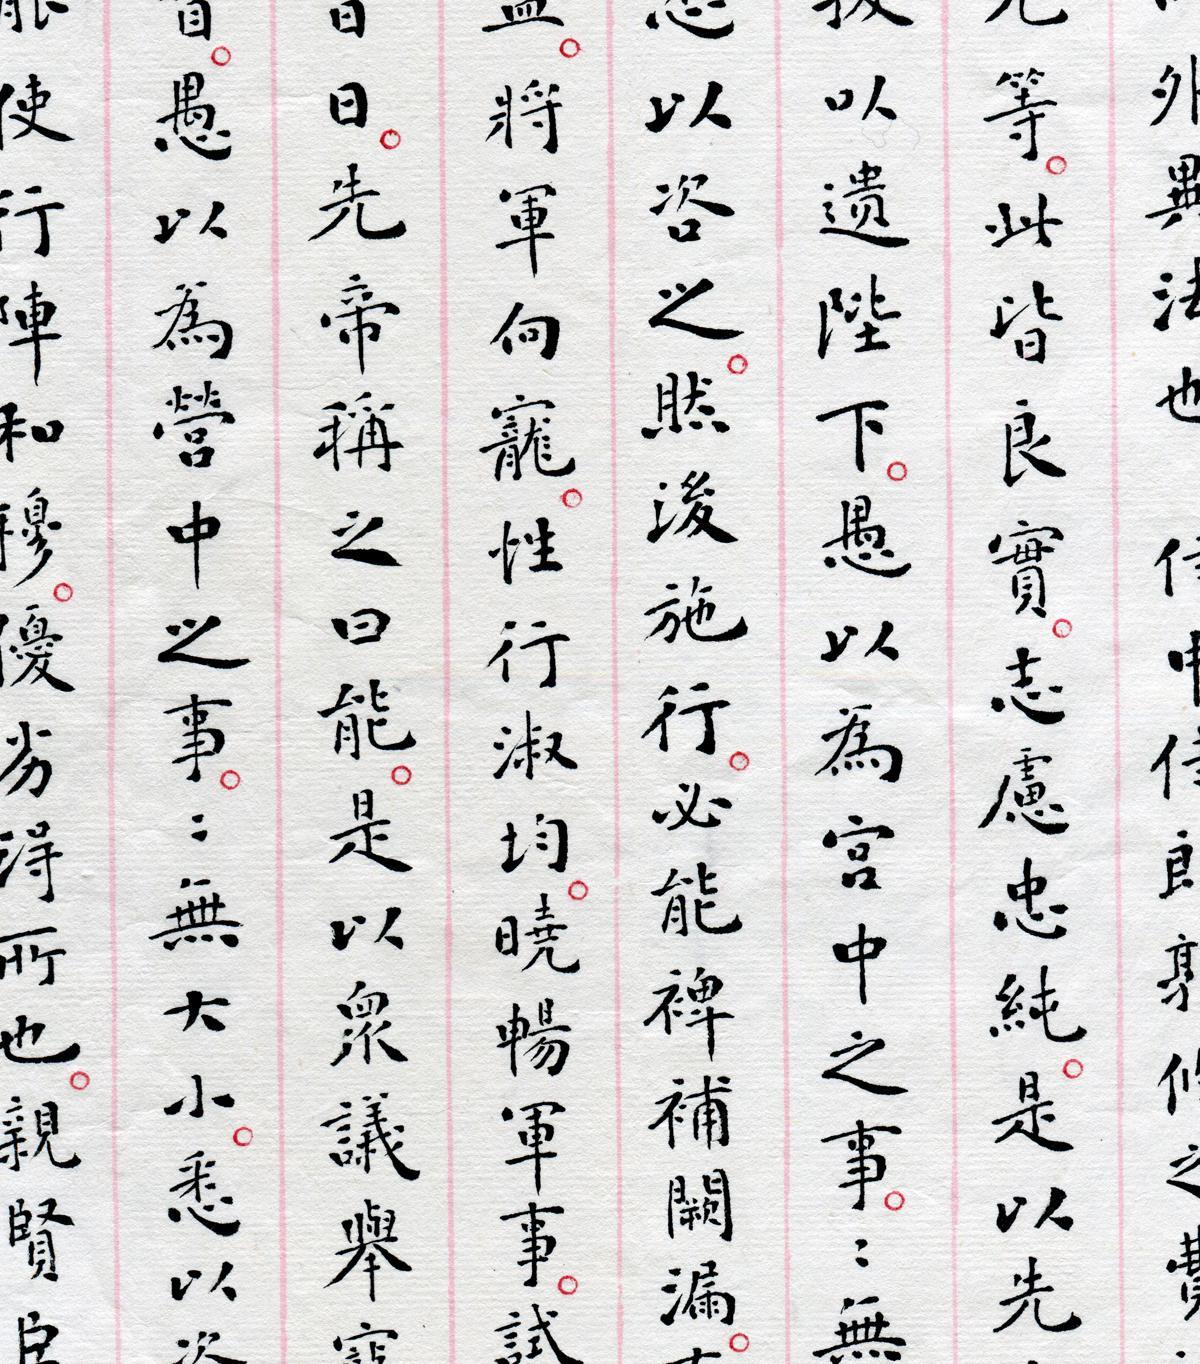 外異法也 侍中侍郎郭攸之費
允等。此皆良實。志慮忠純。是以先
拔以遺陛下。愚以為宮中之事。〻無
悉以咨之。然後施行。必能裨補闕漏。有
益。將軍向寵。性行淑均。曉暢軍事。試
昔日。先帝稱之曰能。是以眾議舉寵
督。愚以為營中之事。〻無大小。悉以咨
能使行陣和穆。優劣得所也。親賢臣